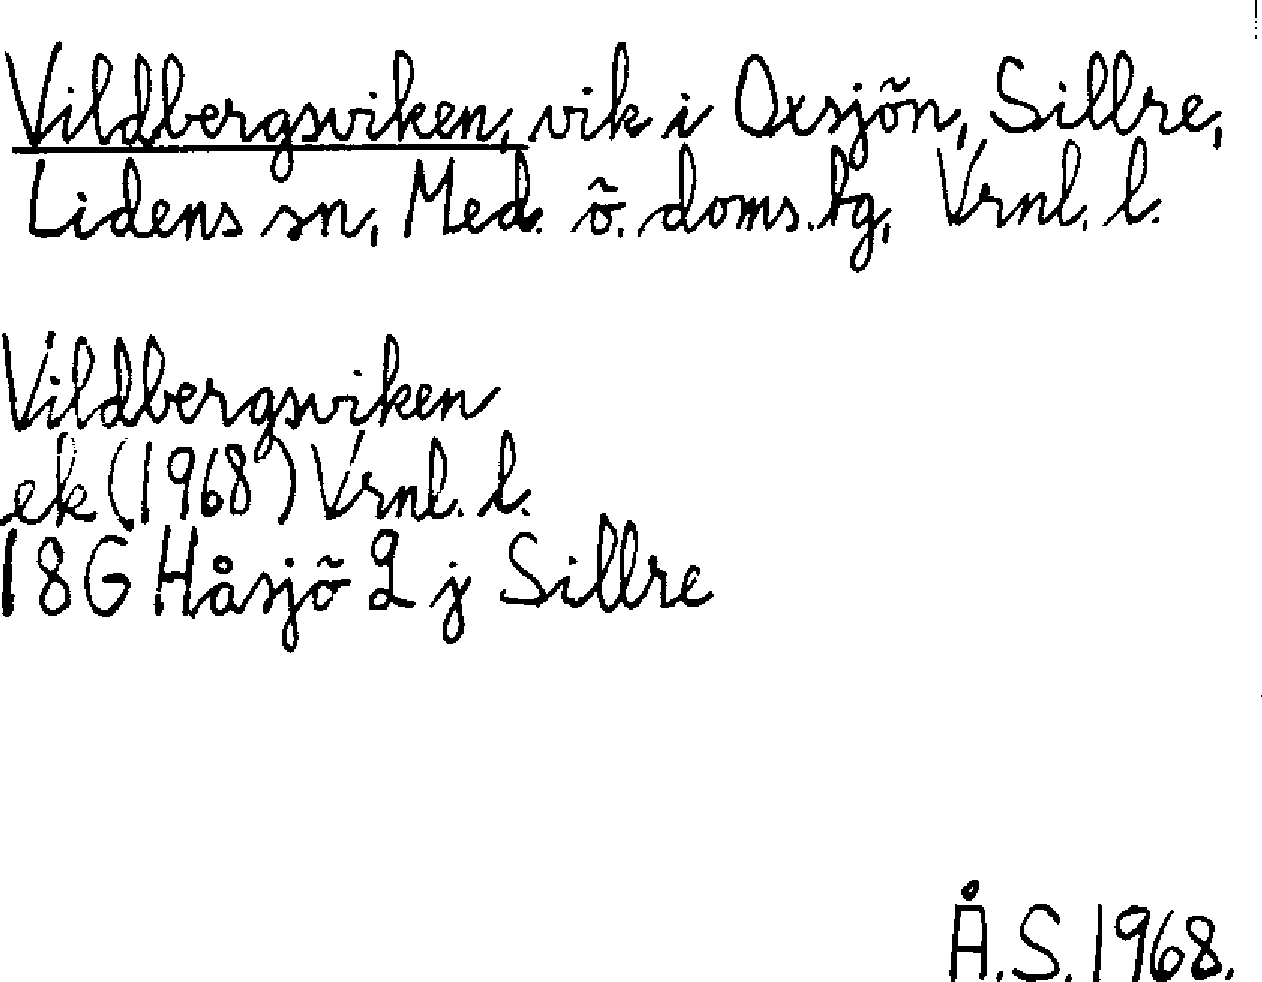 Vildbergsviken, vik i Oxsjön, Sillre,
Lidens sn, Med. ö. doms.hg, Vrnl. l.
Vildbergsviken
ek (1968) Vrnl. l.
18G Håsjö 2 j Sillre
Å.S. 1968.